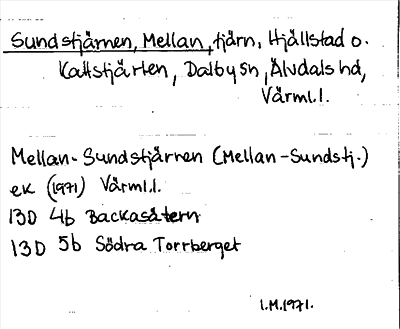 Sundstjärnen, Mellan, tjärn, Hjällstad o.
Kattstjärlen, Dalby sn, Älvdals hd,
Värml.l.
Mellan-Sundstjärnen (Mellan-Sundstj.)
ek (1971) Värml.l.
13D 4b Backasätern
13D 5b Södra Torrberget
I.M.1971.